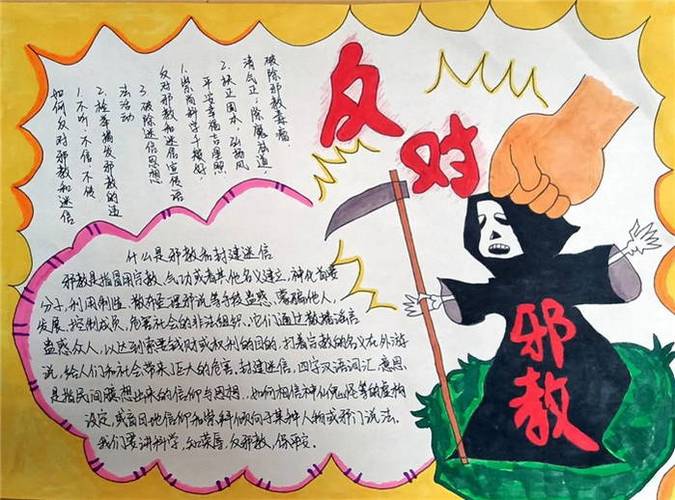 反对
如何反对邪教和迷信
1.不听、不信、不传
2.检举揭发邪教的违
法活动
3.破除迷信思想
反对邪教和迷信宣传语
1.崇尚科学千般好，
平安幸福吉星照
2.扶正固本 弘扬风
清气正；除魔祛道，
破除邪教毒瘤
什么是邪教和封建迷信
邪教是指冒用宗教、气功或者其他名义建立、神化首要
分子，利用制造、散布歪理邪说等手段蛊惑、蒙骗他人，
发展、控制成员，危害社会的非法组织。它们通过散播谣言
蛊惑众人，以达到索要钱财或权利的目的，打着宗教的名义在外游
说，给人们和社会带来了巨大的危害，封建迷信，四字汉语词汇，意思
是指民间臆想出来的信仰与思想，如何相信神仙鬼怪等的虚构
设定，或盲目地信仰和崇拜倾向于某种人物或邪门说法。
我们要讲科学，知荣辱，反邪教，保平安.
邪教